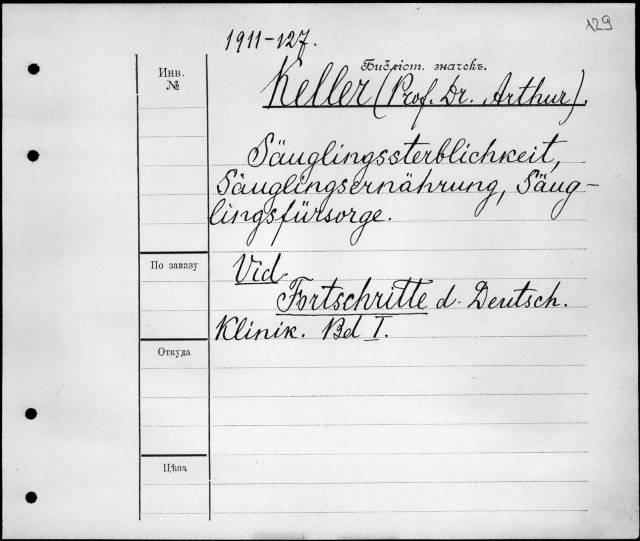 129
1911-127.
Инв.
№
Библіот. значекъ.
Keller (Prof. Dr. Arthur).
Säuglingssterblichkeit,
Säuglingsernährung, Säug-
lingsfürsorge.
По заказу
Vid.
Fortschritte d. Deutsch.
Klinik. Bd I.
Откуда
Цѣна